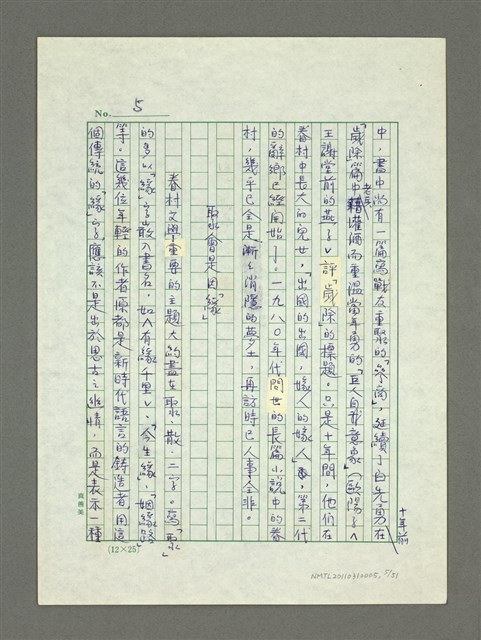 No. 5
十年前
中,書中尚有一篇寫戰友重聚的「參商」,延續了白先勇在
「歲除」篇中老兵藉灌酒而重溫當年勇的「巨人自我意象」(歐陽子〈
王謝堂前的燕子〉評「歲除」的標題。只是十年間,他們在
眷村中長大的兒女,「出國的出國,嫁人的嫁人」,第二代
的辭鄉已經開始——。一九八○年代問世的長篇小說中的眷
村,幾乎已全是漸漸消隱的夢土,再訪時已人事全非。
聚也會是因緣
眷村文學重要的主題大約盡在聚、散、二字。寫「聚」
的多以「緣」字嵌入書名,如〈有緣千里〉、「今生緣」、「姻緣路」
等。這幾位年輕的作者原都是新時代語言的鑄造者,用這
個傳統的「緣」字,應該不是出於思古之幽情,而是表示一種
(12×25)
NMTL20110310005, 5/21